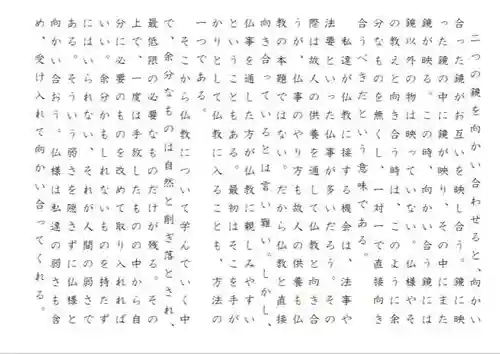 二つの鏡を向かい合わせると、向かい
合った鏡がお互いを映し合う。鏡に映
った鏡の中に映り、その中にまた
鏡が映る。この時、向かい合う鏡には
鏡以外の物は映っていない。仏様やそ
の教えと向き合う時は、このように余
分なものを無くし、一対一で直接向き
合うべきだという意味である。
私達が仏教に接する機会は、法事や
法要といった仏事が多いだろう。その
際は故人の供養を通して仏教と向き合
うが、仏事のやり方も故人の供養も仏
教の本題ではない。だから仏教と直接
向き合っているとは言い難い。しかし、
仏事を通した方が仏教に親しみやすい
ということもある。最初はそこを手が
かりとして仏教に入ることも、方法の
一つである。
そこから仏教について学んでいく中
で、余分なものは自然と削ぎ落とされ、
最低限の必要なものだけが残る。その
上で、一度は手放したものの中から自
分に必要のものを改めて取り入れれば
いい。余分かもしれないものを持たず
にはいられない、それが人間の弱さで
ある。そういう弱さを隠さずに仏様と
向かい合おう。仏様は私達の弱さも含
め、受け入れて向かい合ってくれる。